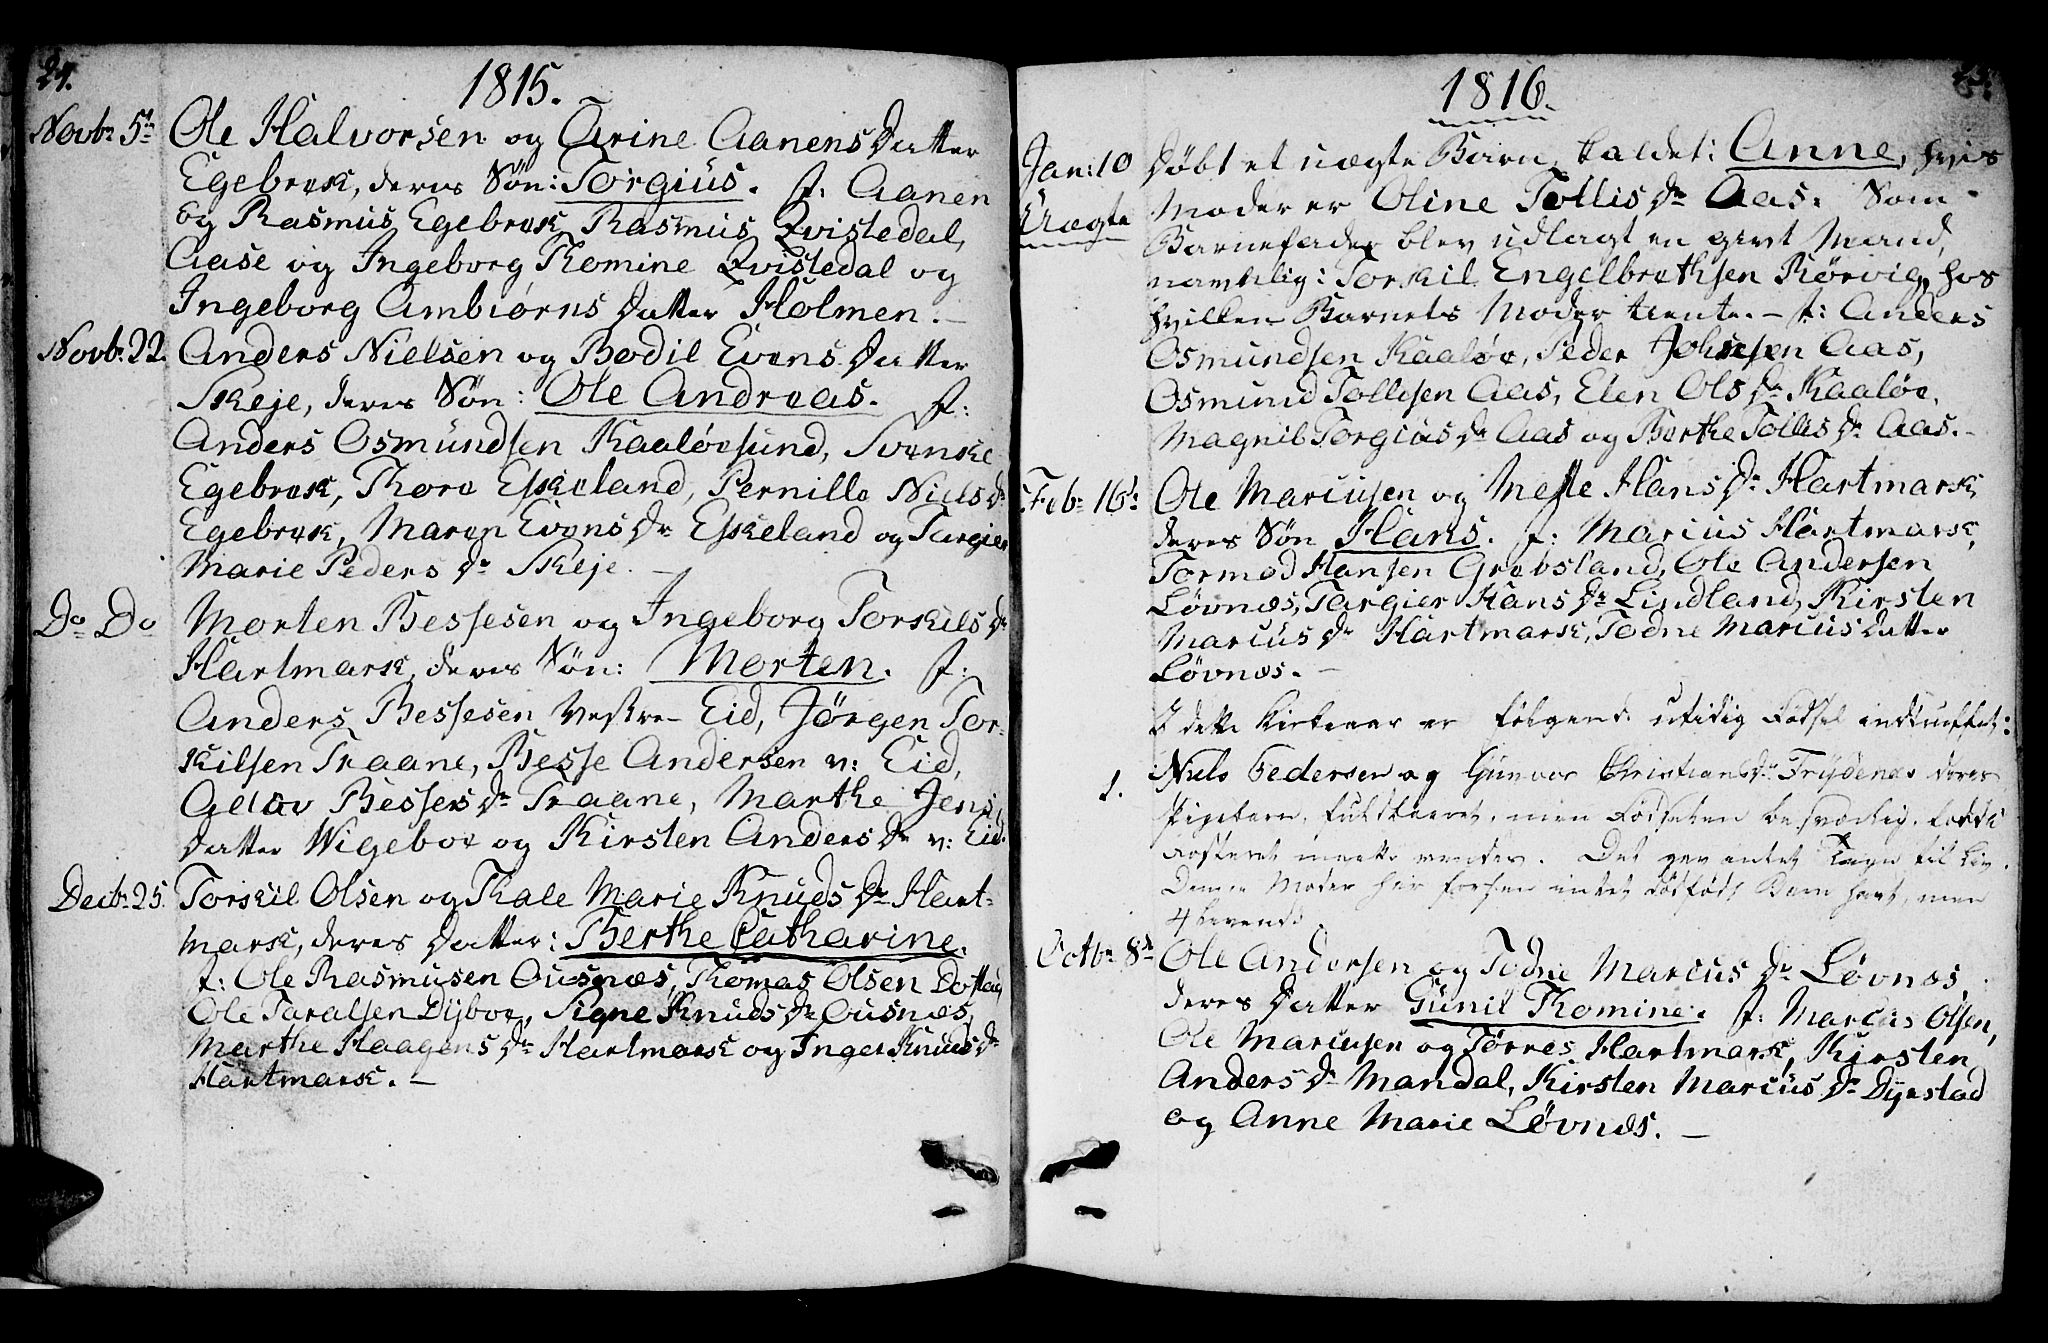 24.
1815.
Novbr 5te Ole Halvorsen og Arine Aanens Datter
Egebræk, deres Søn: Torgius. f: Aanen
og Rasmus Egebræk, Rasmus Qvistedal,
Aase og Ingeborg Thomine Qvistedal og
Ingeborg Ambiörns Datter Holmen. –
Novb: 22. Anders Nielsen og Bodil Evens Datter
Skeje, deres Søn: Ole Andreas. f:
Anders Osmundsen Kaalöesund, Svenke
Egebræk, Thore Eskeland, Pernille Niels Dr
Egebræk, Maren Evens Dr Eskeland og Targier
Marie Peders Dr Skeje. –
Do Do Morten Bessesen og Ingeborg Torkils Dr
Hartmark, deres Søn: Morten. f:
Anders Bessesen Vestre Eid, Jörgen Tor-
kilsen Traane, Besse Andersen v: Eid,
Adlov Besses Dr Traane, Marthe Jens
Datter Wigeboe og Kirsten Anders Dr v: Eid.
Decbr 25. Torkiil Olsen og Thale Marie Knuds Dr Hart-
mark, deres Datter: Berthe Catharine.
f: Ole Rasmusen Ousnæs, Thomas Olsen
Ole Taralsen Dÿboe, Signe Knuds Dr Ousnæs,
Marthe Haagens Dr Hartmark og Inger Knuds Dr
Hartmark. –
1816.
Jan: 10 Döbt et uægte Barn, kaldet: Anne, hvis
Uægte Moder er Oline Tollis Dr Aas. Som
Barnefader blev udlagt en givt Mand,
navnlig: Torkil Engelbrethsen Rörvig, hos
hvilken Barnets Moder tiente. – f: Anders
Osmundsen Kaalöe, Peder Aas,
Osmund Tollisen Aas, Elen Ols Dr Kaalöe,
Magnil Torgius Dr Aas og Berthe Tollis Dr Aas. –
Febr 16de Ole Marcusen og Mette Hans Dr Hartmark
deres Søn Hans. f: Marcus Hartmark,
Tormod Hansen Grebsland, Ole Andersen
Lövnæs, Targier Hans Dr Lindland, Kirsten
Marcus Dr Hartmark, Todne Marcus Datter
Lövnæs. –
I dette Kirkeaar er følgende utidig Födsel indtruffet:
1. Niels Pedersen og Gunvor Christians Dr Trÿdenæs deres
Pigebarn, fuldbaaret, men Födselen besværlig,
Fosteret maatte vendes. Det gav intet Tegn til Liv.
Denne Moder har forhen intet dødfödt Barn havt, men
4 levende.
Octbr 8de Ole Andersen og Todne Marcus Dr Lövnæs,
deres Datter Gunil Thomine. f: Marcus Olsen,
Ole Marcusen og Törres Hartmark, Kirsten
Anders Dr Mandal, Kirsten Marcus Dr Dÿrstad
og Anne Marie Lövnæs. –